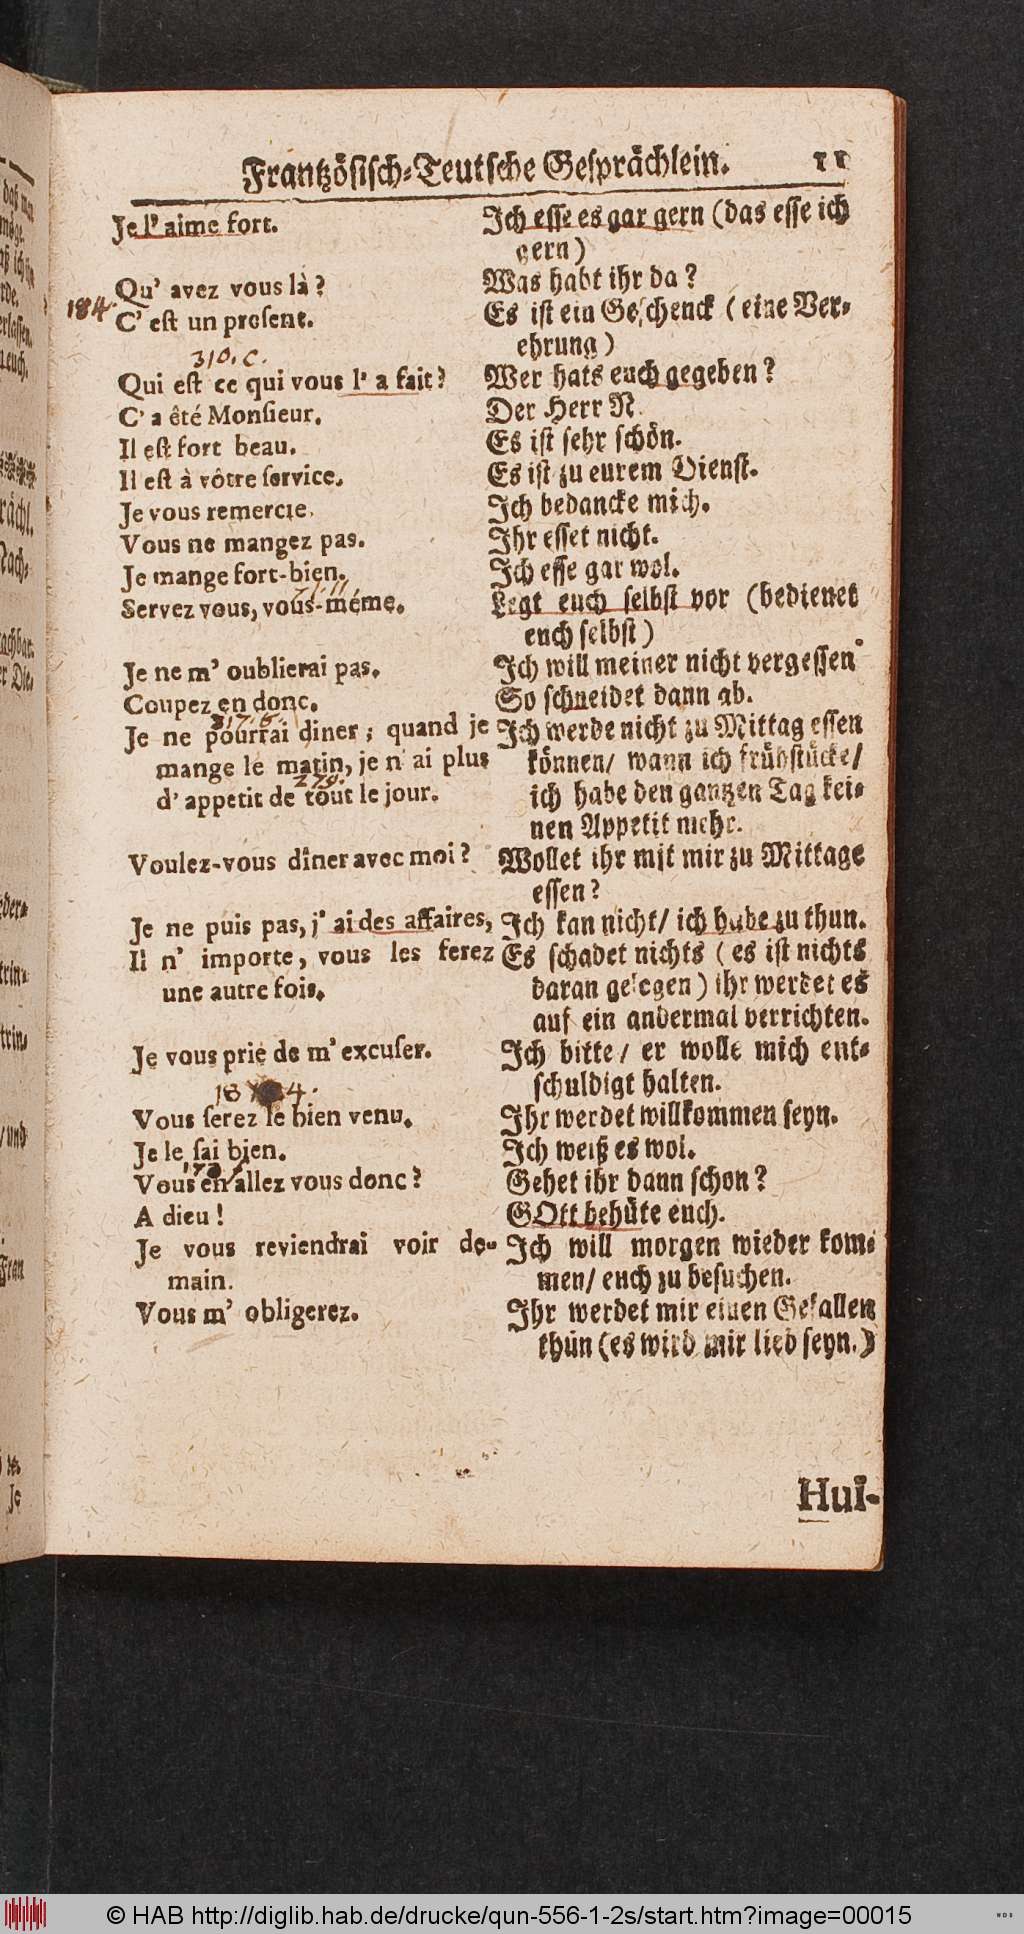 Frantzösisch-Teutsche Gesprächlein. 11
Je l' aime fort.
Qu' avez vous là?
184.
C' est un present.
310. C.
Qui est ce qui vous l' a fait?
C' a êté Monsieur.
Il est fort beau.
Il est à vôtre service.
Je vous remercie.
Vous ne mangez pas.
Je mange fort-bien.
Servez vous, vous-méme.
Je ne m' oublierai pas.
Coupez en donc.
Je ne pourrai diner; quand je
mange le matin, je n' ai plus
279.
d' appetit de tout le jour.
Voulez-vous dîner avec moi?
Je ne puis pas, j' ai des affaires,
Il n' importe, vous les ferez
une autre fois.
Je vous prie de m' excuser.
Vous serez le bien venu.
Je le sai bien.
Vous en allez vous donc?
A dieu!
Je vous reviendrai voir de-
main.
Vous m' obligerez.
Ich esse es gar gern (das esse ich
gern)
Was habt ihr da?
Es ist ein Geschenck (eine Ver-
ehrung)
Wer hats euch gegeben?
Der Herr N.
Es ist sehr schön.
Es ist zu eurem Dienst.
Ich bedancke mich.
Ihr esset nicht.
Ich esse gar wol.
Legt euch selbst vor (bedienet
euch selbst)
Ich will meiner nicht vergessen
So schneidet dann ab.
Ich werde nicht zu Mittag essen
können/ wann ich frühstücke/
ich habe den gantzen Tag kei-
nen Appetit mehr.
Wollet ihr mit mir zu Mittage
essen?
Ich kan nicht/ ich habe zu thun.
Es schadet nichts (es ist nichts
daran gelegen) ihr werdet es
auf ein andermal verrichten.
Ich bitte/ er wolle mich ent-
schuldigt halten.
Ihr werdet willkommen seyn.
Ich weiß es wol.
Gehet ihr dann schon?
GOtt behüte euch.
Ich will morgen wieder kom-
men/ euch zu besuchen.
Ihr werdet mir einen Gefallen
thun (es wird mir lieb seyn.)
Hui-
© HAB http://diglib.hab.de/drucke/qun-556-1-2s/start.htm?image=00015